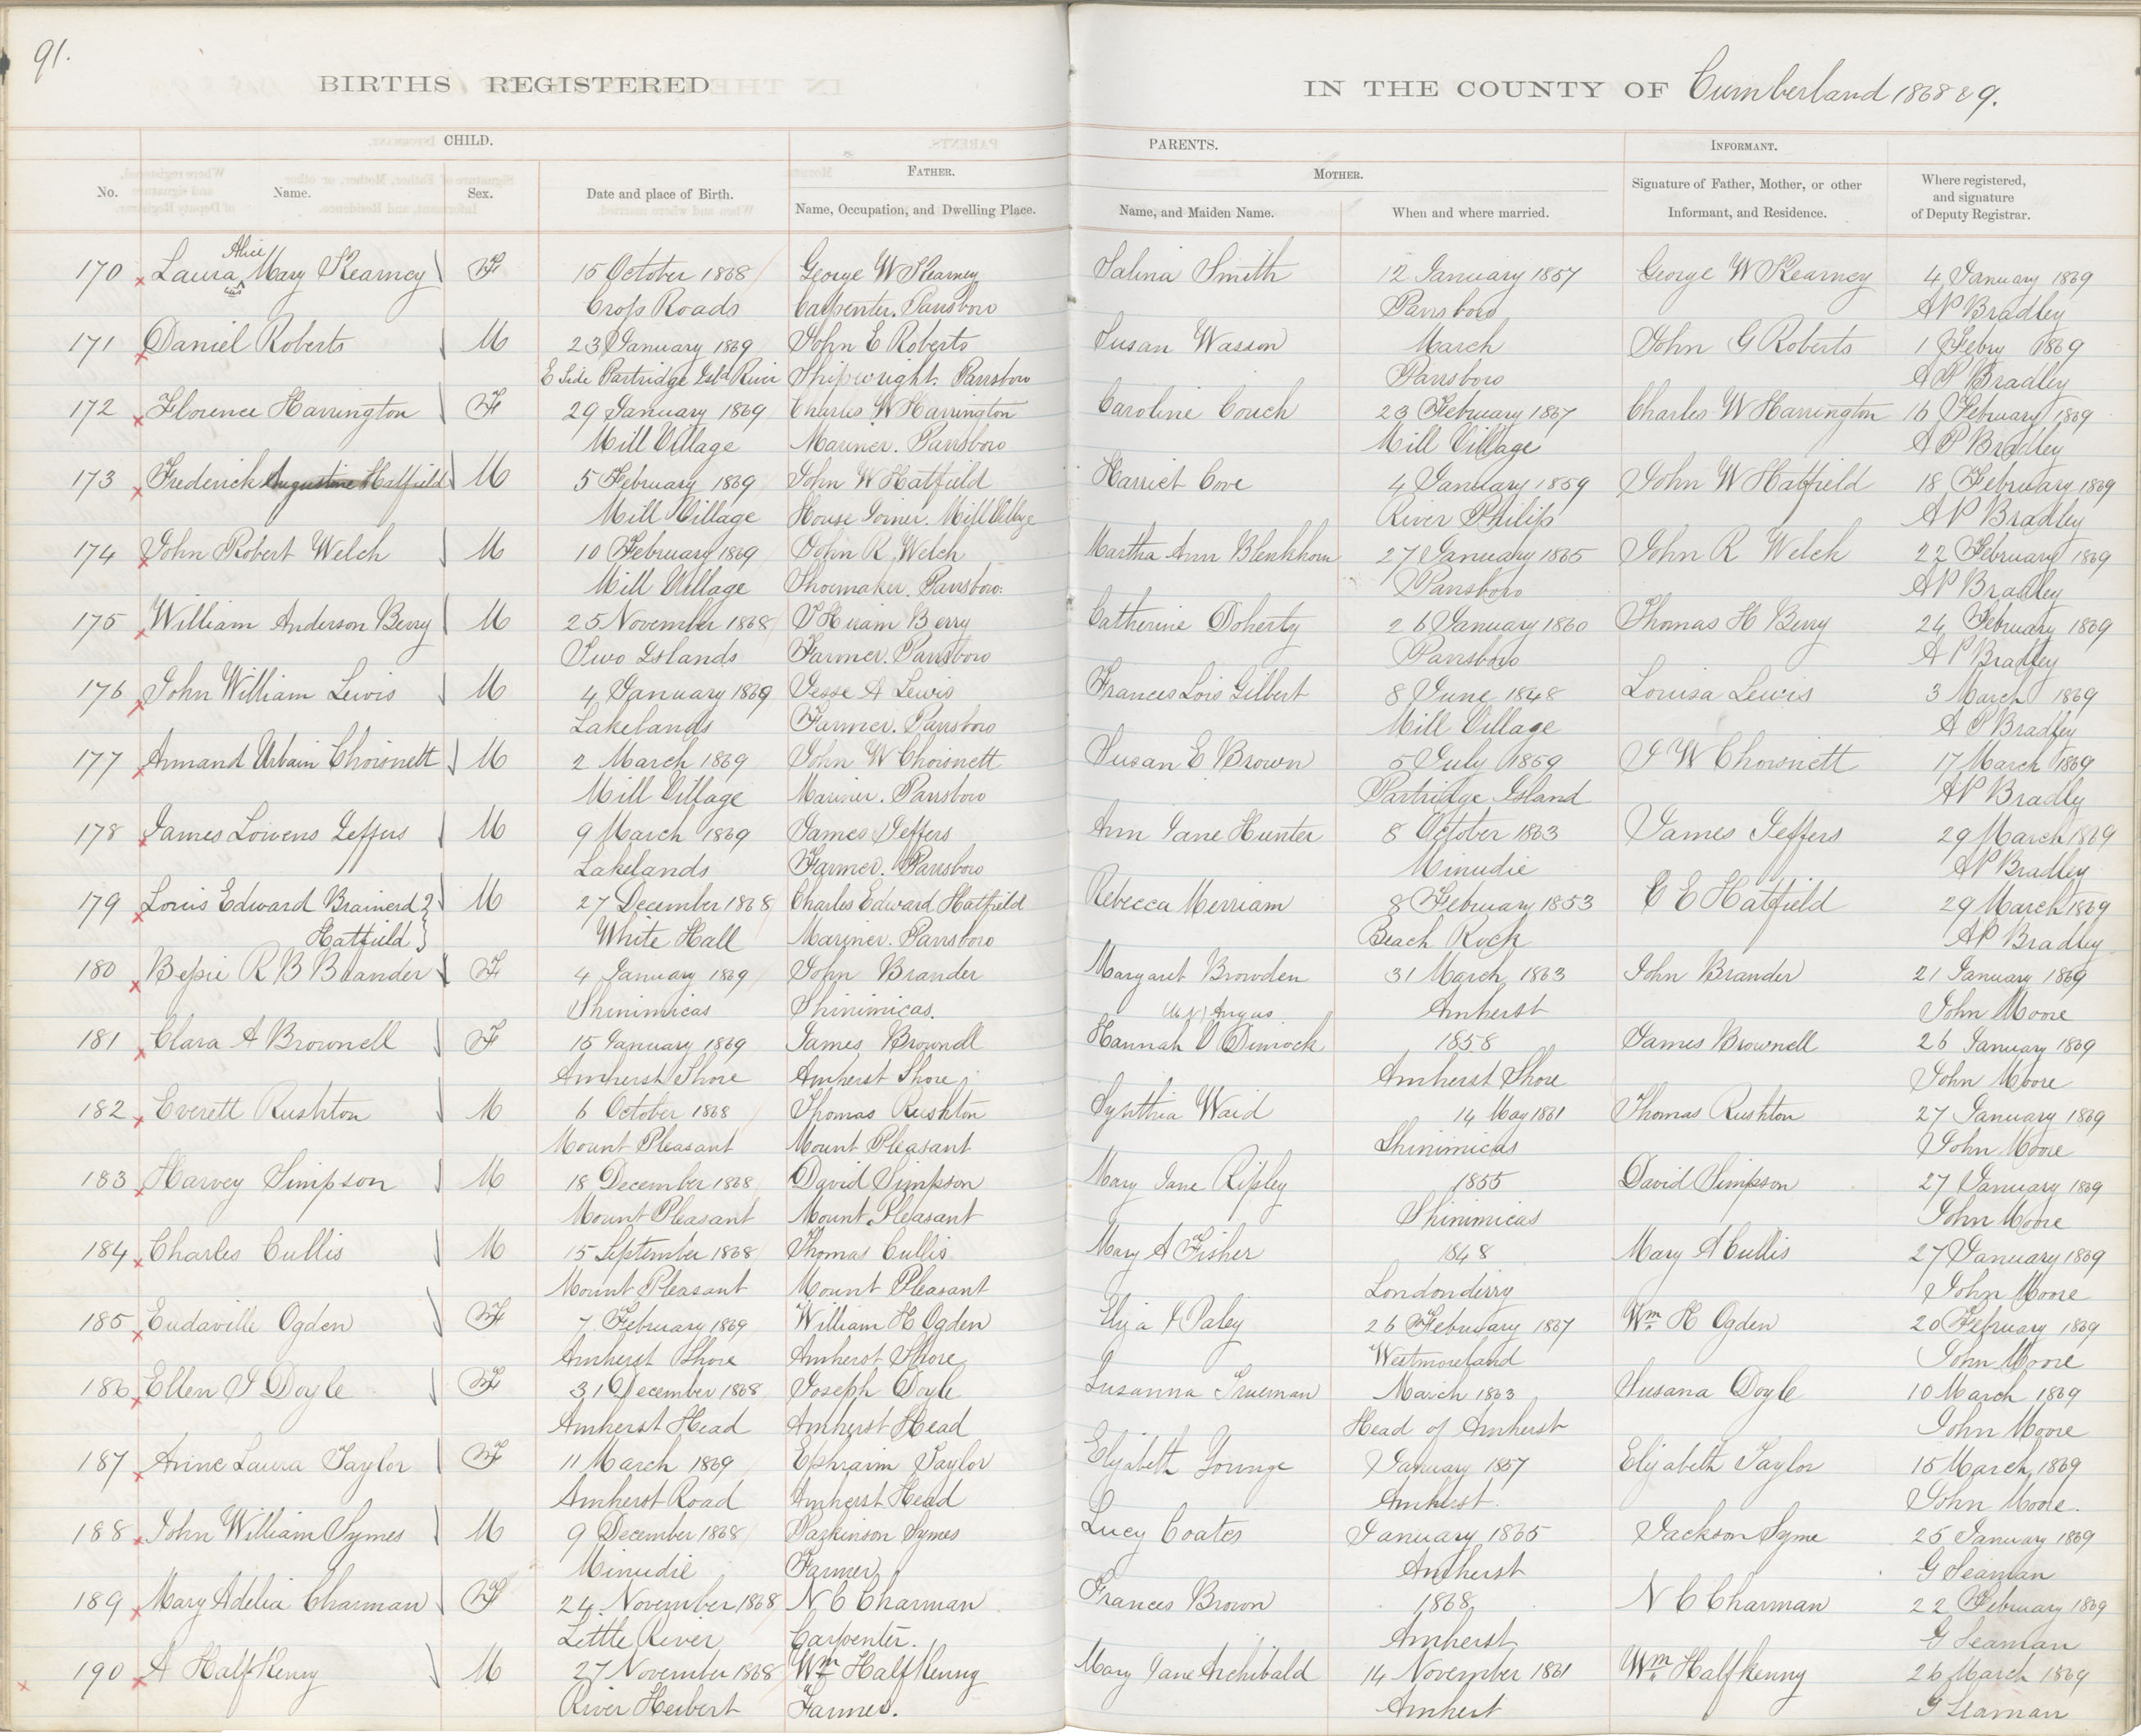 91.
BIRTHS REGISTERED
IN THE COUNTY OF Cumberland 1868 & 9.
CHILD.
PARENTS.
INFORMANT.
No.
Name.
Sex.
Date and place of Birth.
FATHER.
Name, Occupation, and Dwelling Place.
MOTHER.
Name, and Maiden Name.
When and where married.
Signature of Father, Mother, or other
Informant, and Residence.
Where registered,
and signature
of Deputy Registrar.
Alice
170 Laura Mary Kearney F 15 October 1868 George W Kearney Salina Smith 12 January 1857 George W Kearney 4 January 1869
Cross Roads Carpenter. Parrsboro Parrsboro A P Bradley
171 Daniel Roberts M 23 January 1869 John E Roberts Susan Wasson March John G Roberts 1 Febry 1869
E Side Partridge Isld River Shipwright. Parrsboro Parrsboro A P Bradley
172 Florence Harrington F 29 January 1869 Charles W Harrington Caroline Couch 23 February 1867 Charles W Harrington 16 February 1869
Mill Village Mariner. Parrsboro Mill Village A P Bradley
173 Frederick Augustine Hatfield M 5 February 1869 John W Hatfield Harriet Cove 4 January 1859 John W Hatfield 18 February 1869
Mill Village House Joiner. Mill Village River Philip A P Bradley
174 John Robert Welch M 10 February 1869 John R Welch Martha Ann Blenkhorn 27 January 1865 John R Welch 22 February 1869
Mill Village Shoemaker. Parrsboro. Parrsboro A P Bradley
175 William Anderson Berry M 25 November 1868 T Hiram Berry Catherine Doherty 26 January 1860 Thomas H Berry 24 February 1869
Two Islands Farmer. Parrsboro Parrsboro A P Bradley
176 John William Lewis M 4 January 1869 Jesse A Lewis Frances Lois Gilbert 8 June 1848 Louisa Lewis 3 March 1869
Lakelands Farmer. Parrsboro Mill Village A P Bradley
177 Armand Urbain Choisnett M 2 March 1869 John W Choisnett Susan E Brown 5 July 1859 J W Choisnett 17 March 1869
Mill Village Mariner. Parrsboro Partridge Island A P Bradley
178 James Lowens Jeffers M 9 March 1869 James Jeffers Ann Jane Hunter 8 October 1863 James Jeffers 29 March 1869
Lakelands Farmer. Parrsboro Minudie A P Bradley
179 Louis Edward Brainerd M 27 December 1868 Charles Edward Hatfield Rebecca Merriam 8 February 1853 C E Hatfield 29 March 1869
Hatfield White Hall Mariner. Parrsboro Beach Rock A P Bradley
180 Bessie R B Brander F 4 January 1869 John Brander Margaret Browden 31 March 1863 John Brander 21 January 1869
Shinimicas Shinimicas. Angus Amherst John Moore
181 Clara A Brownell F 15 January 1869 James Brownell Hannah O Dimock 1858 James Brownell 26 January 1869
Amherst Shore Amherst Shore Amherst Shore John Moore
182 Everett Rushton M 6 October 1868 Thomas Rushton Synthia Waid 14 May 1861 Thomas Rushton 27 January 1869
Mount Pleasant Mount Pleasant Shinimicas John Moore
183 Harvey Simpson M 18 December 1868 David Simpson Mary Jane Ripley 1855 David Simpson 27 January 1869
Mount Pleasant Mount Pleasant Shinimicas John Moore
184 Charles Cullis M 15 September 1868 Thomas Cullis Mary A Fisher 1848 Mary A Cullis 27 January 1869
Mount Pleasant Mount Pleasant Londonderry John Moore
185 Eudaville Ogden F 7 February 1869 William H Ogden Eliza J Paley 26 February 1867 Wm H Ogden 20 February 1869
Amherst Shore Amherst Shore Westmoreland John Moore
186 Ellen J Doyle F 31 December 1868 Joseph Doyle Susanna Trueman March 1863 Susana Doyle 10 March 1869
Amherst Head Amherst Head Head of Amherst John Moore
187 Anne Laura Taylor F 11 March 1869 Ephraim Taylor Elizabeth Younge January 1857 Elizabeth Taylor 15 March 1869
Amherst Road Amherst Head Amherst. John Moore.
188 John William Symes M 9 December 1868 Parkinson Symes Lucy Coates January 1865 Jackson Syme 25 January 1869
Minudie Farmer Amherst G Seaman
189 Mary Adelia Charman F 24 November 1868 N C Charman Frances Brown 1868 N C Charman 22 February 1869
Little River Carpenter. Amherst G Seaman
190 A Halfkenny M 27 November 1868 Wm Halfkenny Mary Jane Archibald 14 November 1861 Wm Halfkenny 26 March 1869
River Hebert Farmer. Amherst G Seaman